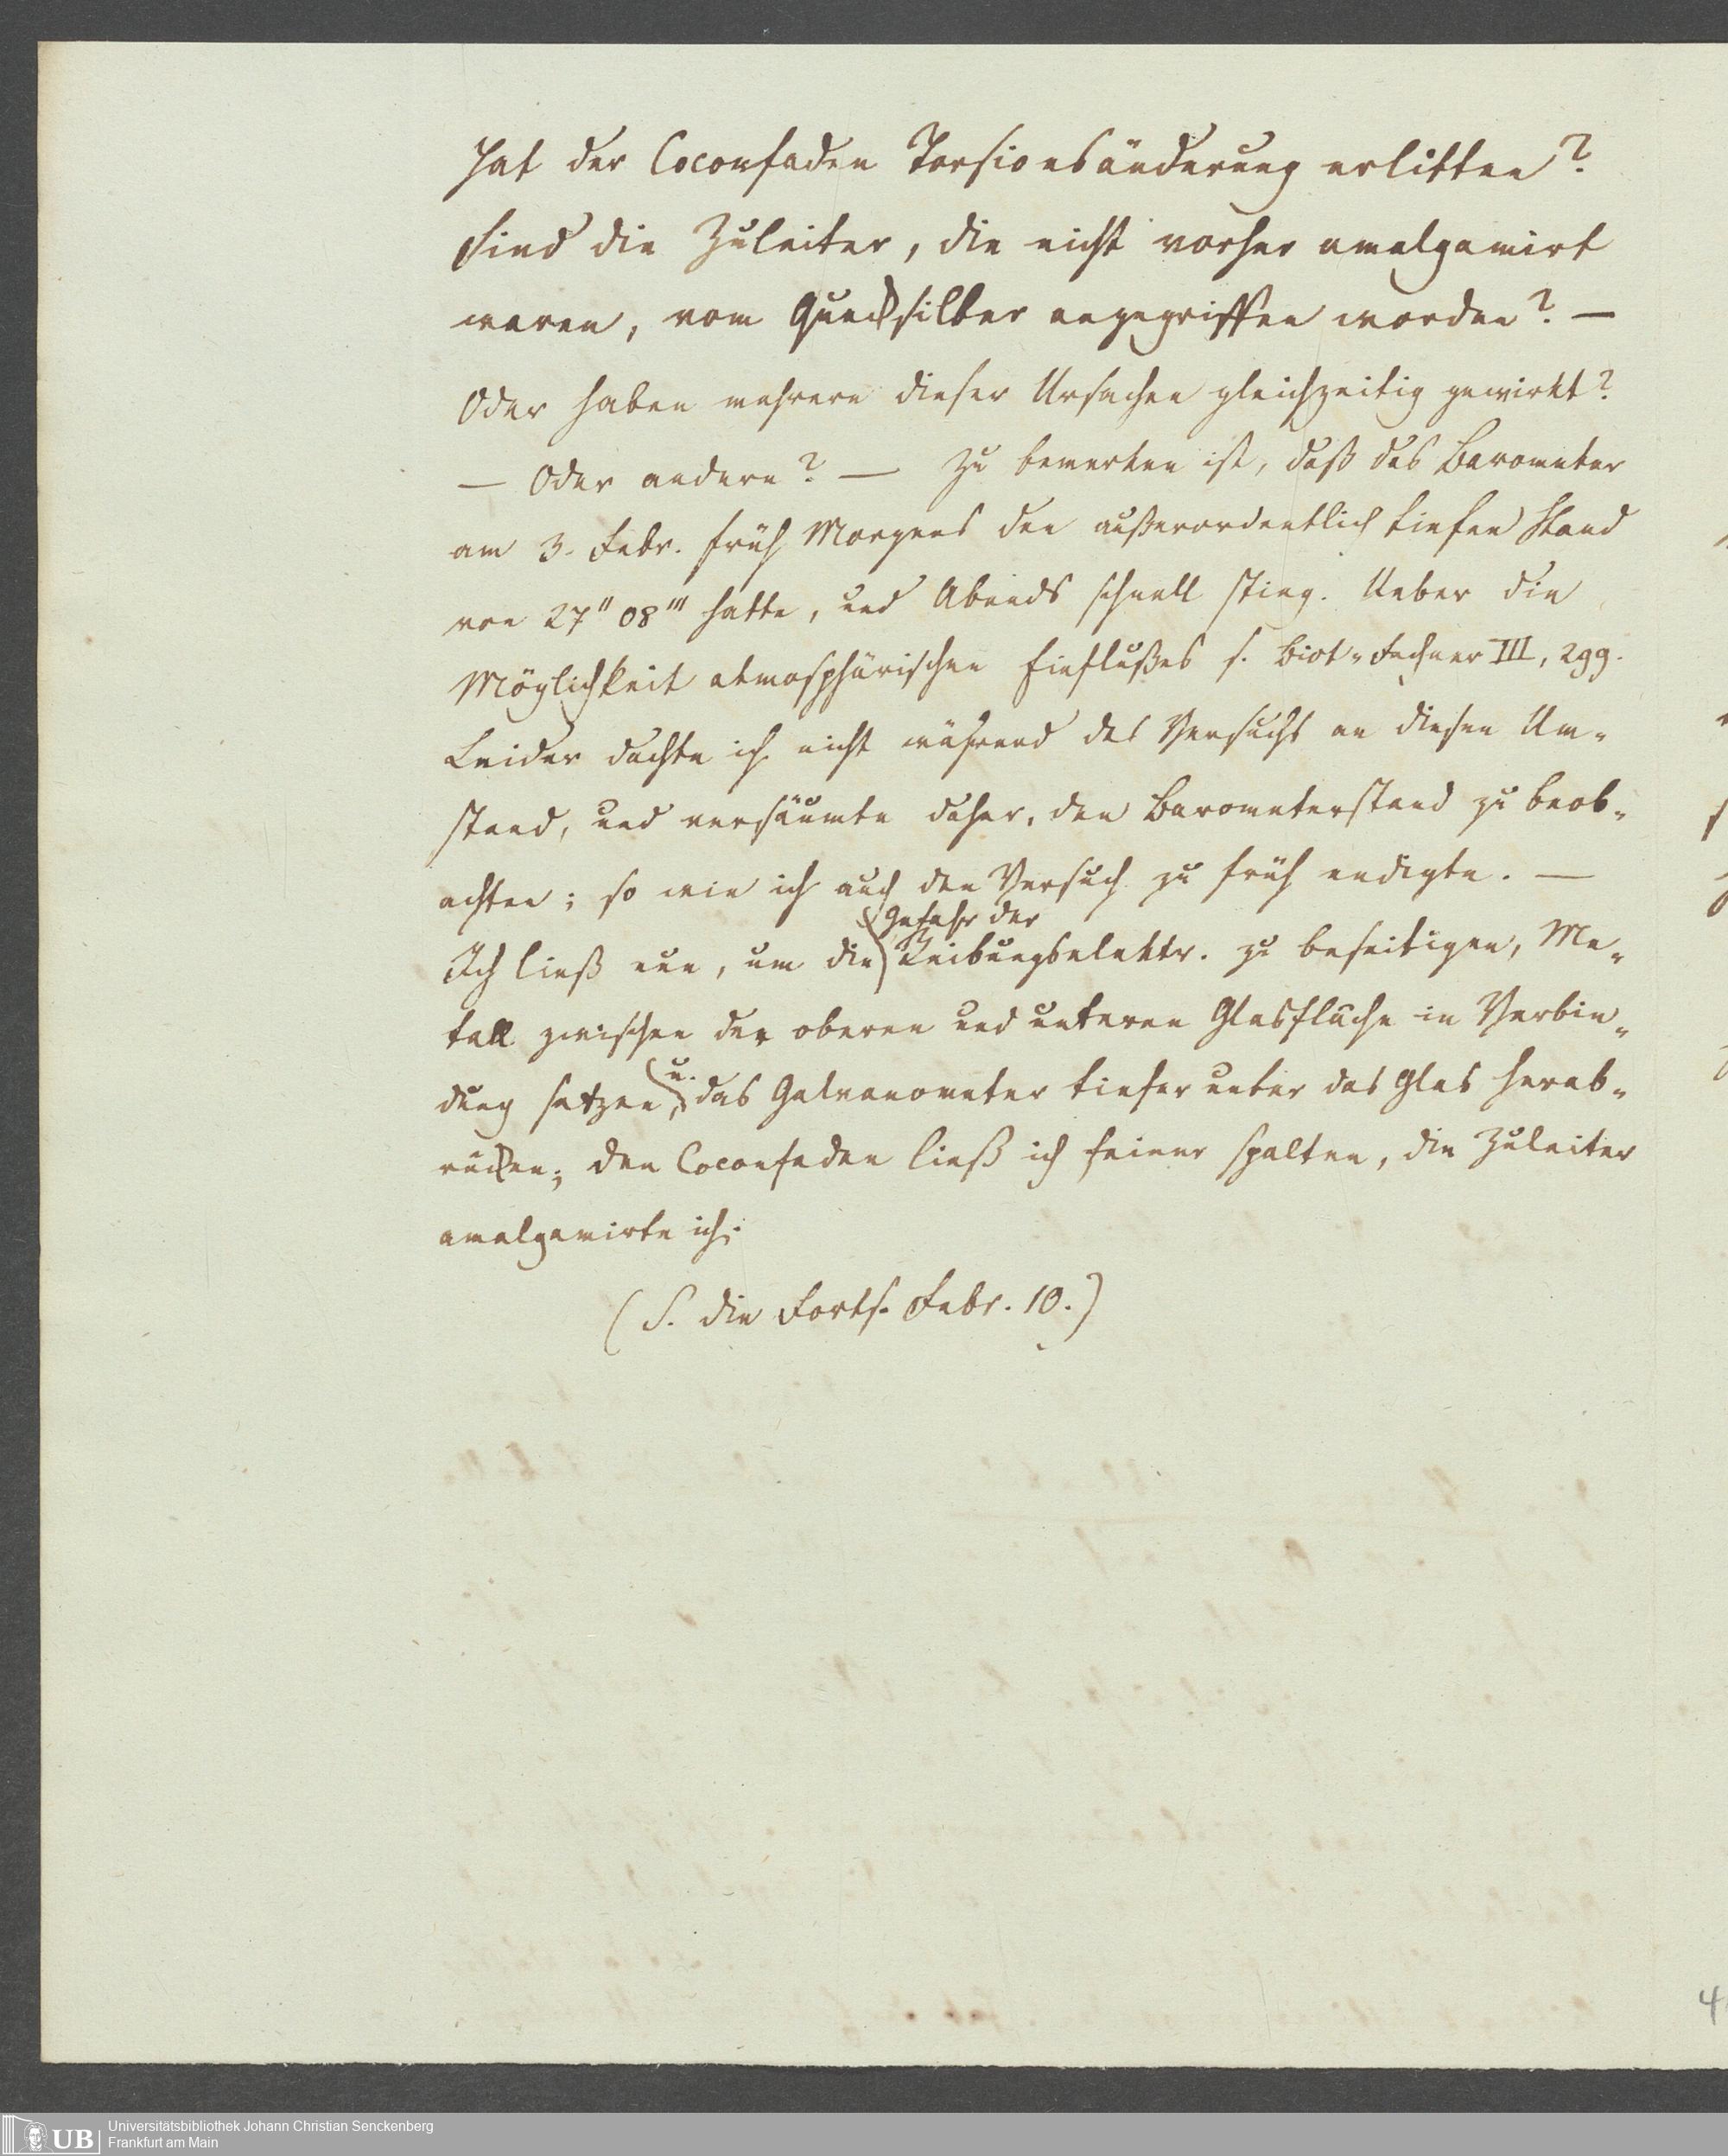 Hat der Coconfaden Torsionsänderung erlitten?
Sind die Zuleiter, die nicht vorher amalgamirt
waren, vom Quecksilber angegriffen worden? —
Oder haben mehrere dieser Ursachen gleichzeitig gewirkt?
— Oder andere? — Zu bemerken ist, daß das Barometer
am 3. Febr. früh Morgens den außerordentlich tiefen Stand
von 27" 08"' hatte, und Abends schnell stieg. Ueber die
Möglichkeit atmosphärischen Einflußes s. Biot-Fechner III, 299.
Leider dachte ich nicht während des Versuchs an diesen Um-
stand, und versäumte daher, den Barometerstand zu beob-
achten; so wie ich auch den Versuch zu früh endigte. —
Gefahr der
Ich ließ nun, um die Reibungselektr. zu beseitigen, Me-
tall zwischen der oberen und unteren Glasfläche in Verbin-
dung setzen, u. das Galvanometer tiefer unter das Glas herab-
rücken; den Coconfaden ließ ich feiner spalten, die Zuleiter
amalgamirte ich.
(S. die Forts. Febr. 10.)
UB
Universitätsbibliothek Johann Christian Senckenberg
Frankfurt am Main